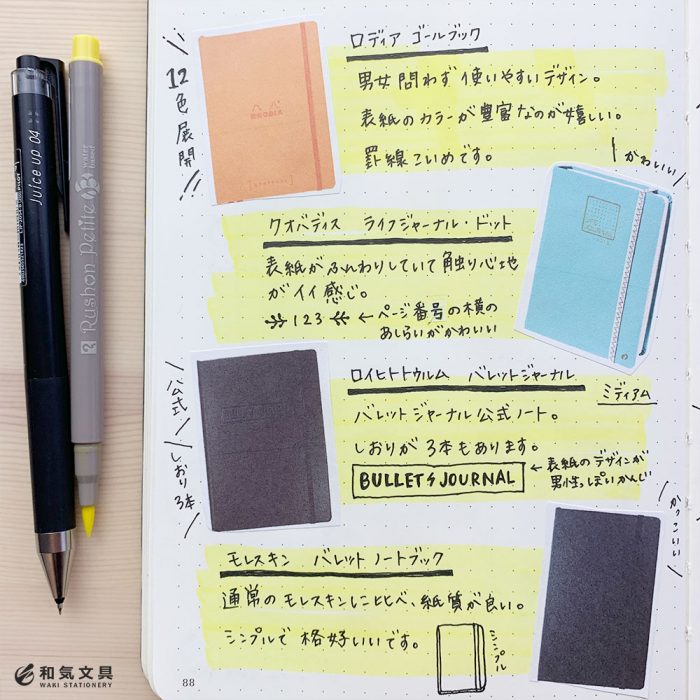 ロディア ゴールブック
男女問わず使いやすいデザイン。
表紙のカラーが豊富なのが嬉しい。
罫線こいめです。
12色展開
RHODIA
かわいい
クオバディス ライフジャーナル・ドット
表紙がふんわりしていて触り心地
がイイ感じ。
123 ← ページ番号の横の
あしらいがかわいい
LIFE JOURNAL
ロイヒトトウルム バレットジャーナル
ミディアム
バレットジャーナル公式ノート。
しおりが3本もあります。
BULLET JOURNAL
← 表紙のデザインが
男性っぽいかんじ
公式
しおり3本
かっこいい
モレスキン バレットノートブック
通常のモレスキンに比べ、紙質が良い。
シンプルで格好いいです。
シンプル
88
Juice up 04
2 Rushon Petite
water based
和気文具
WAKI STATIONERY